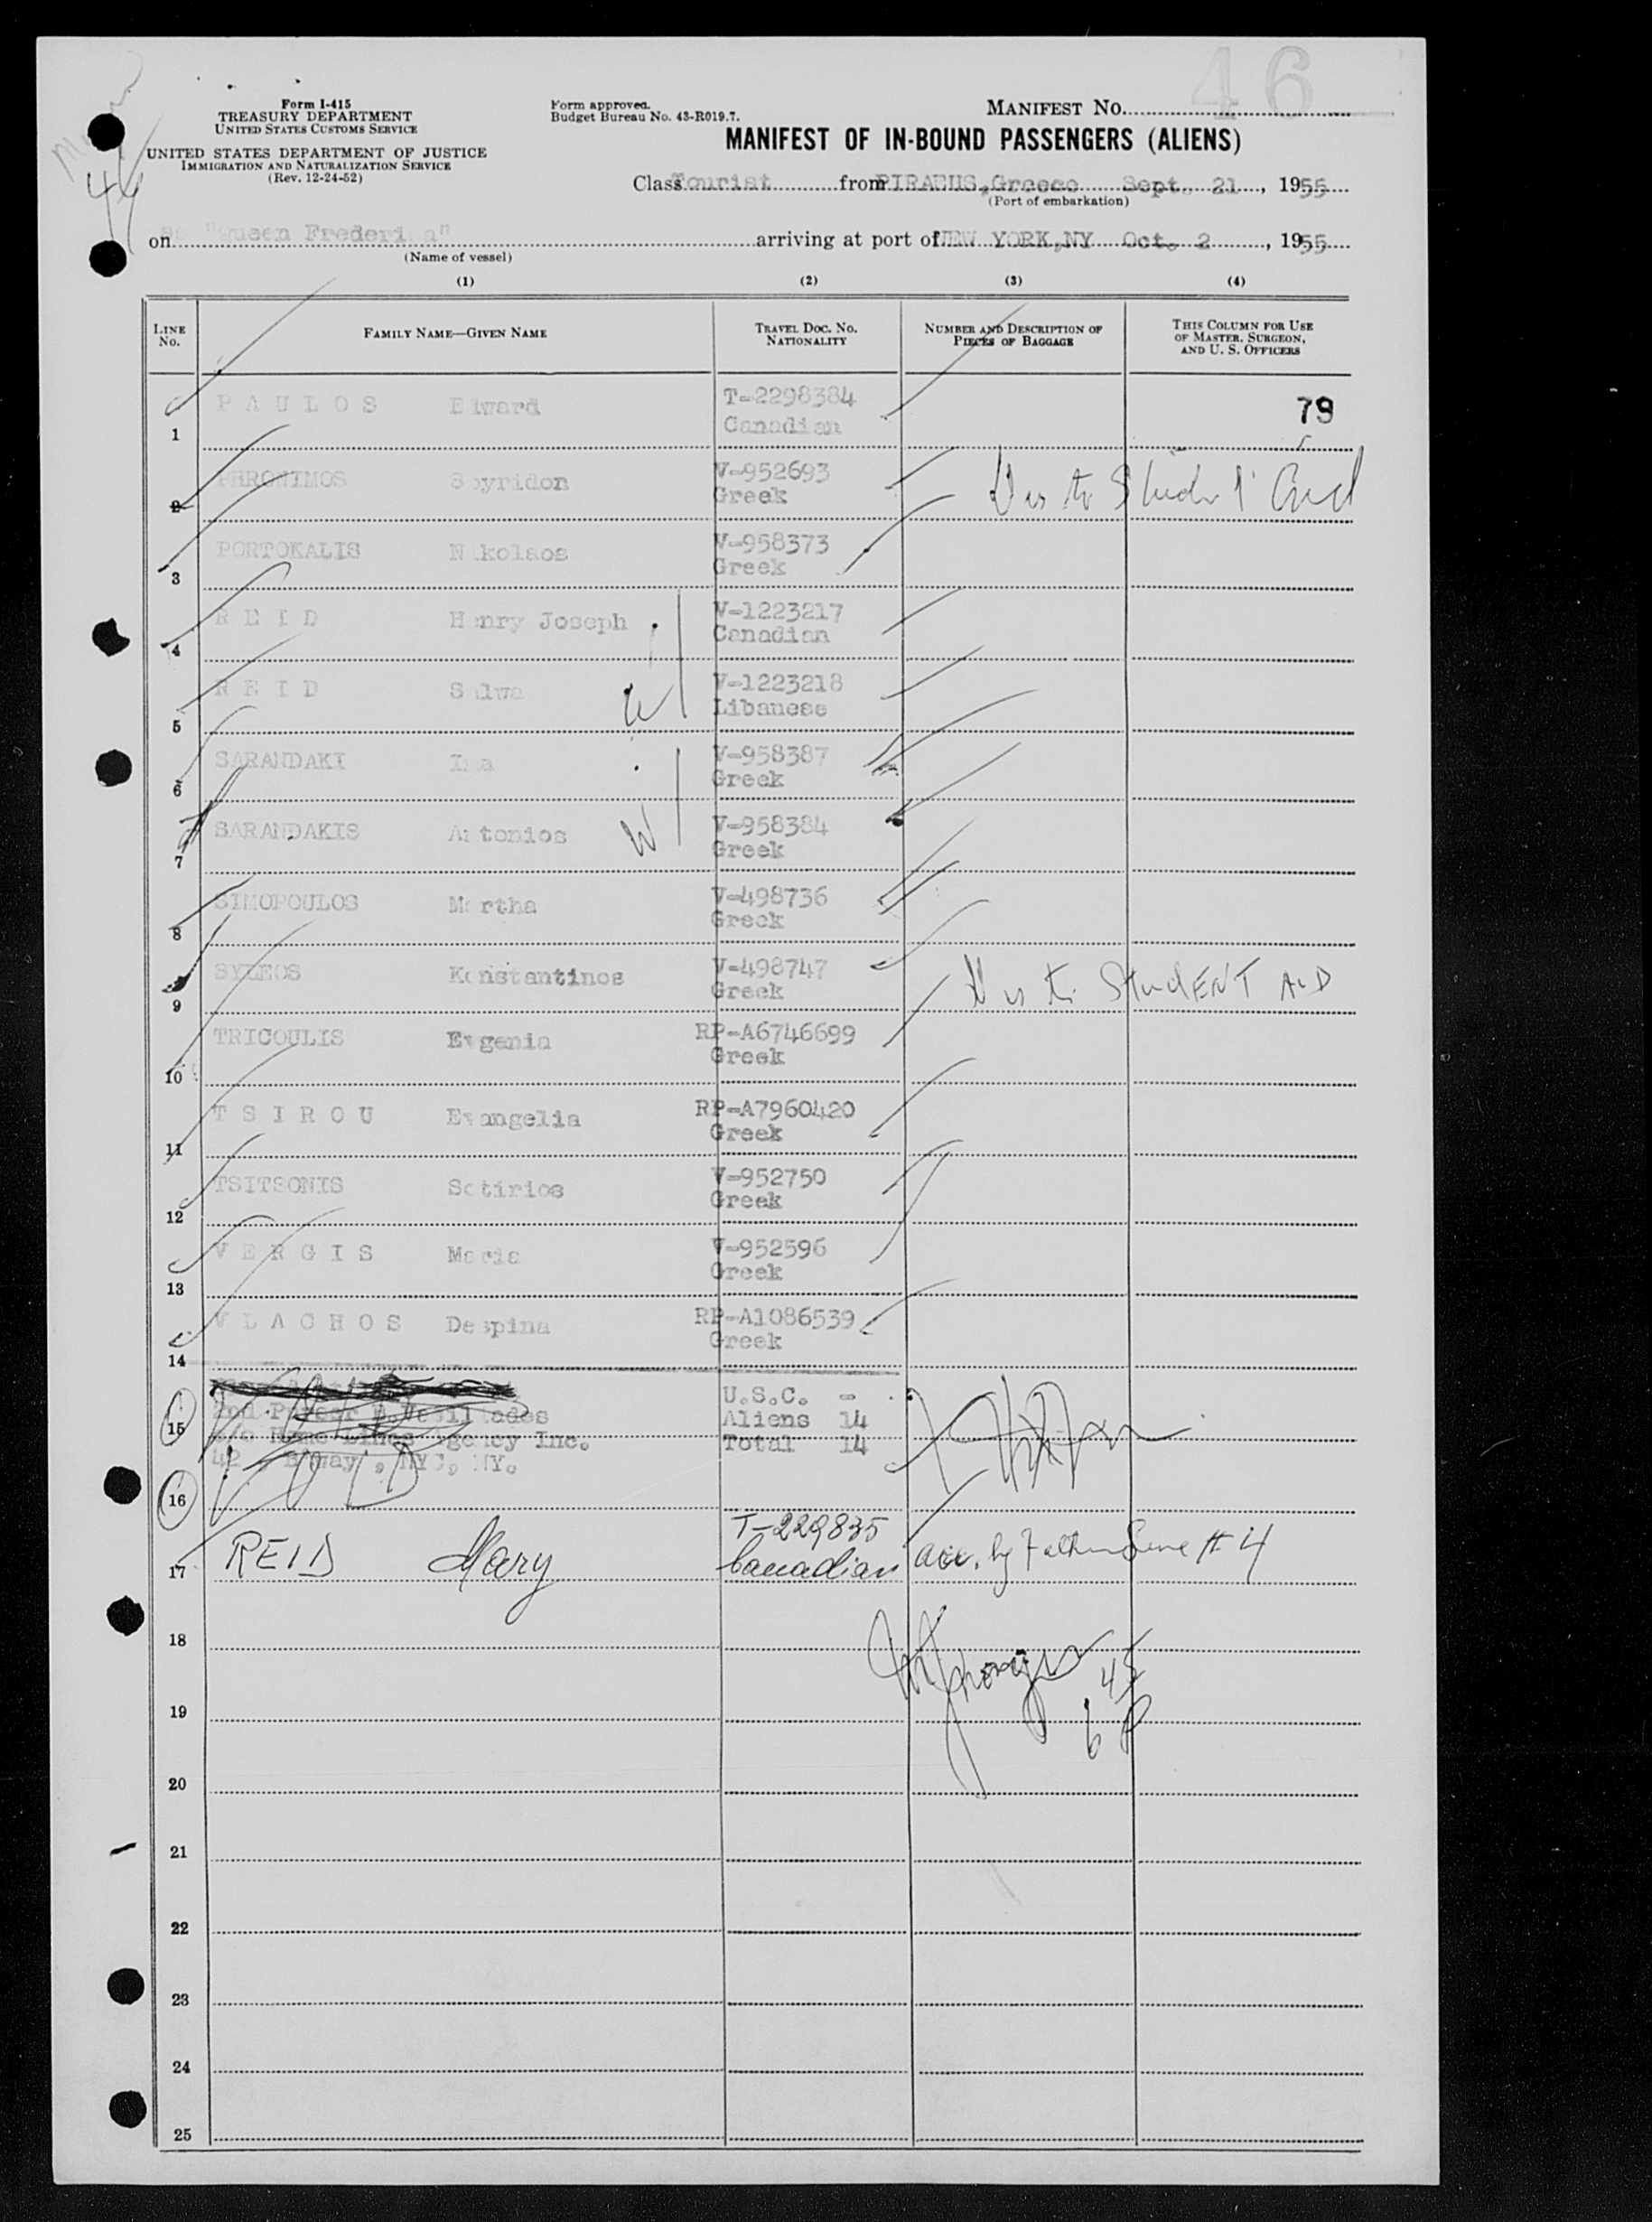 46
Form I-415
TREASURY DEPARTMENT
UNITED STATES CUSTOMS SERVICE
UNITED STATES DEPARTMENT OF JUSTICE
IMMIGRATION AND NATURALIZATION SERVICE
(Rev. 12-24-52)
Form approved.
Budget Bureau No. 43-R019.7.
MANIFEST NO.
MANIFEST OF IN-BOUND PASSENGERS (ALIENS)
Class Tourist from PIRAEUS, Greece Sept. 21, 1955
(Port of embarkation)
on "Queen Frederica" arriving at port of NEW YORK, NY Oct. 2, 1955
(Name of vessel)
(1) (2) (3) (4)
LINE No. FAMILY NAME—GIVEN NAME TRAVEL DOC. NO. NATIONALITY NUMBER AND DESCRIPTION OF PIECES OF BAGGAGE THIS COLUMN FOR USE OF MASTER, SURGEON, AND U. S. OFFICERS
1 PAULOS Edward T-2298384 Canadian 79
2 Spyridon V-952693 Greek
3 PORTOKALIS Nikolaos V-958373 Greek
4 REID Henry Joseph V-1223217 Canadian
5 REID Salwa V-1223218 Libanese
6 SARANDAKI V-958387 Greek
7 SARANDAKIS Antonios V-958384 Greek
8 SIMOPOULOS Martha V-498736 Greek
9 Konstantinos V-498747 Greek STUDENT AID
10 TRICOULIS Evgenia RP-A6746699 Greek
11 TSIROU Evangelia RP-A7960420 Greek
12 TSITSONIS Sotirios V-952750 Greek
13 VERGIS Maria V-952596 Greek
14 VLACHOS Despina RP-A1086539 Greek
15 2nd Purser
c/o Home Lines Agency Inc.
42, B'way, NYC, NY.
U.S.C. -
Aliens 14
Total 14
16
17 REID Mary T-229835 Canadian acc. by Father Line # 4
18
19
20
21
22
23
24
25